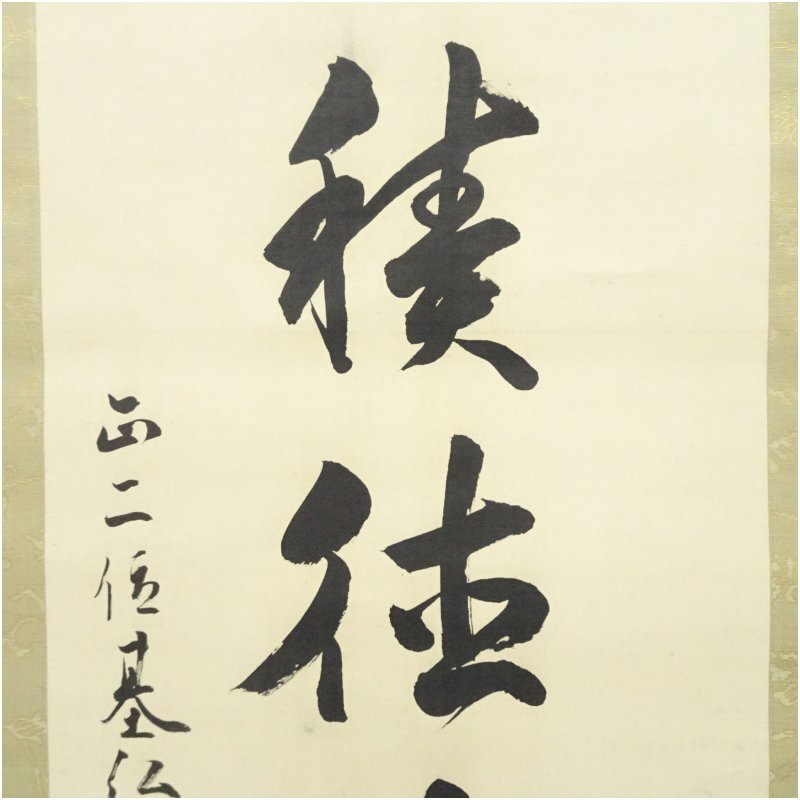 積徳
正二位基弘